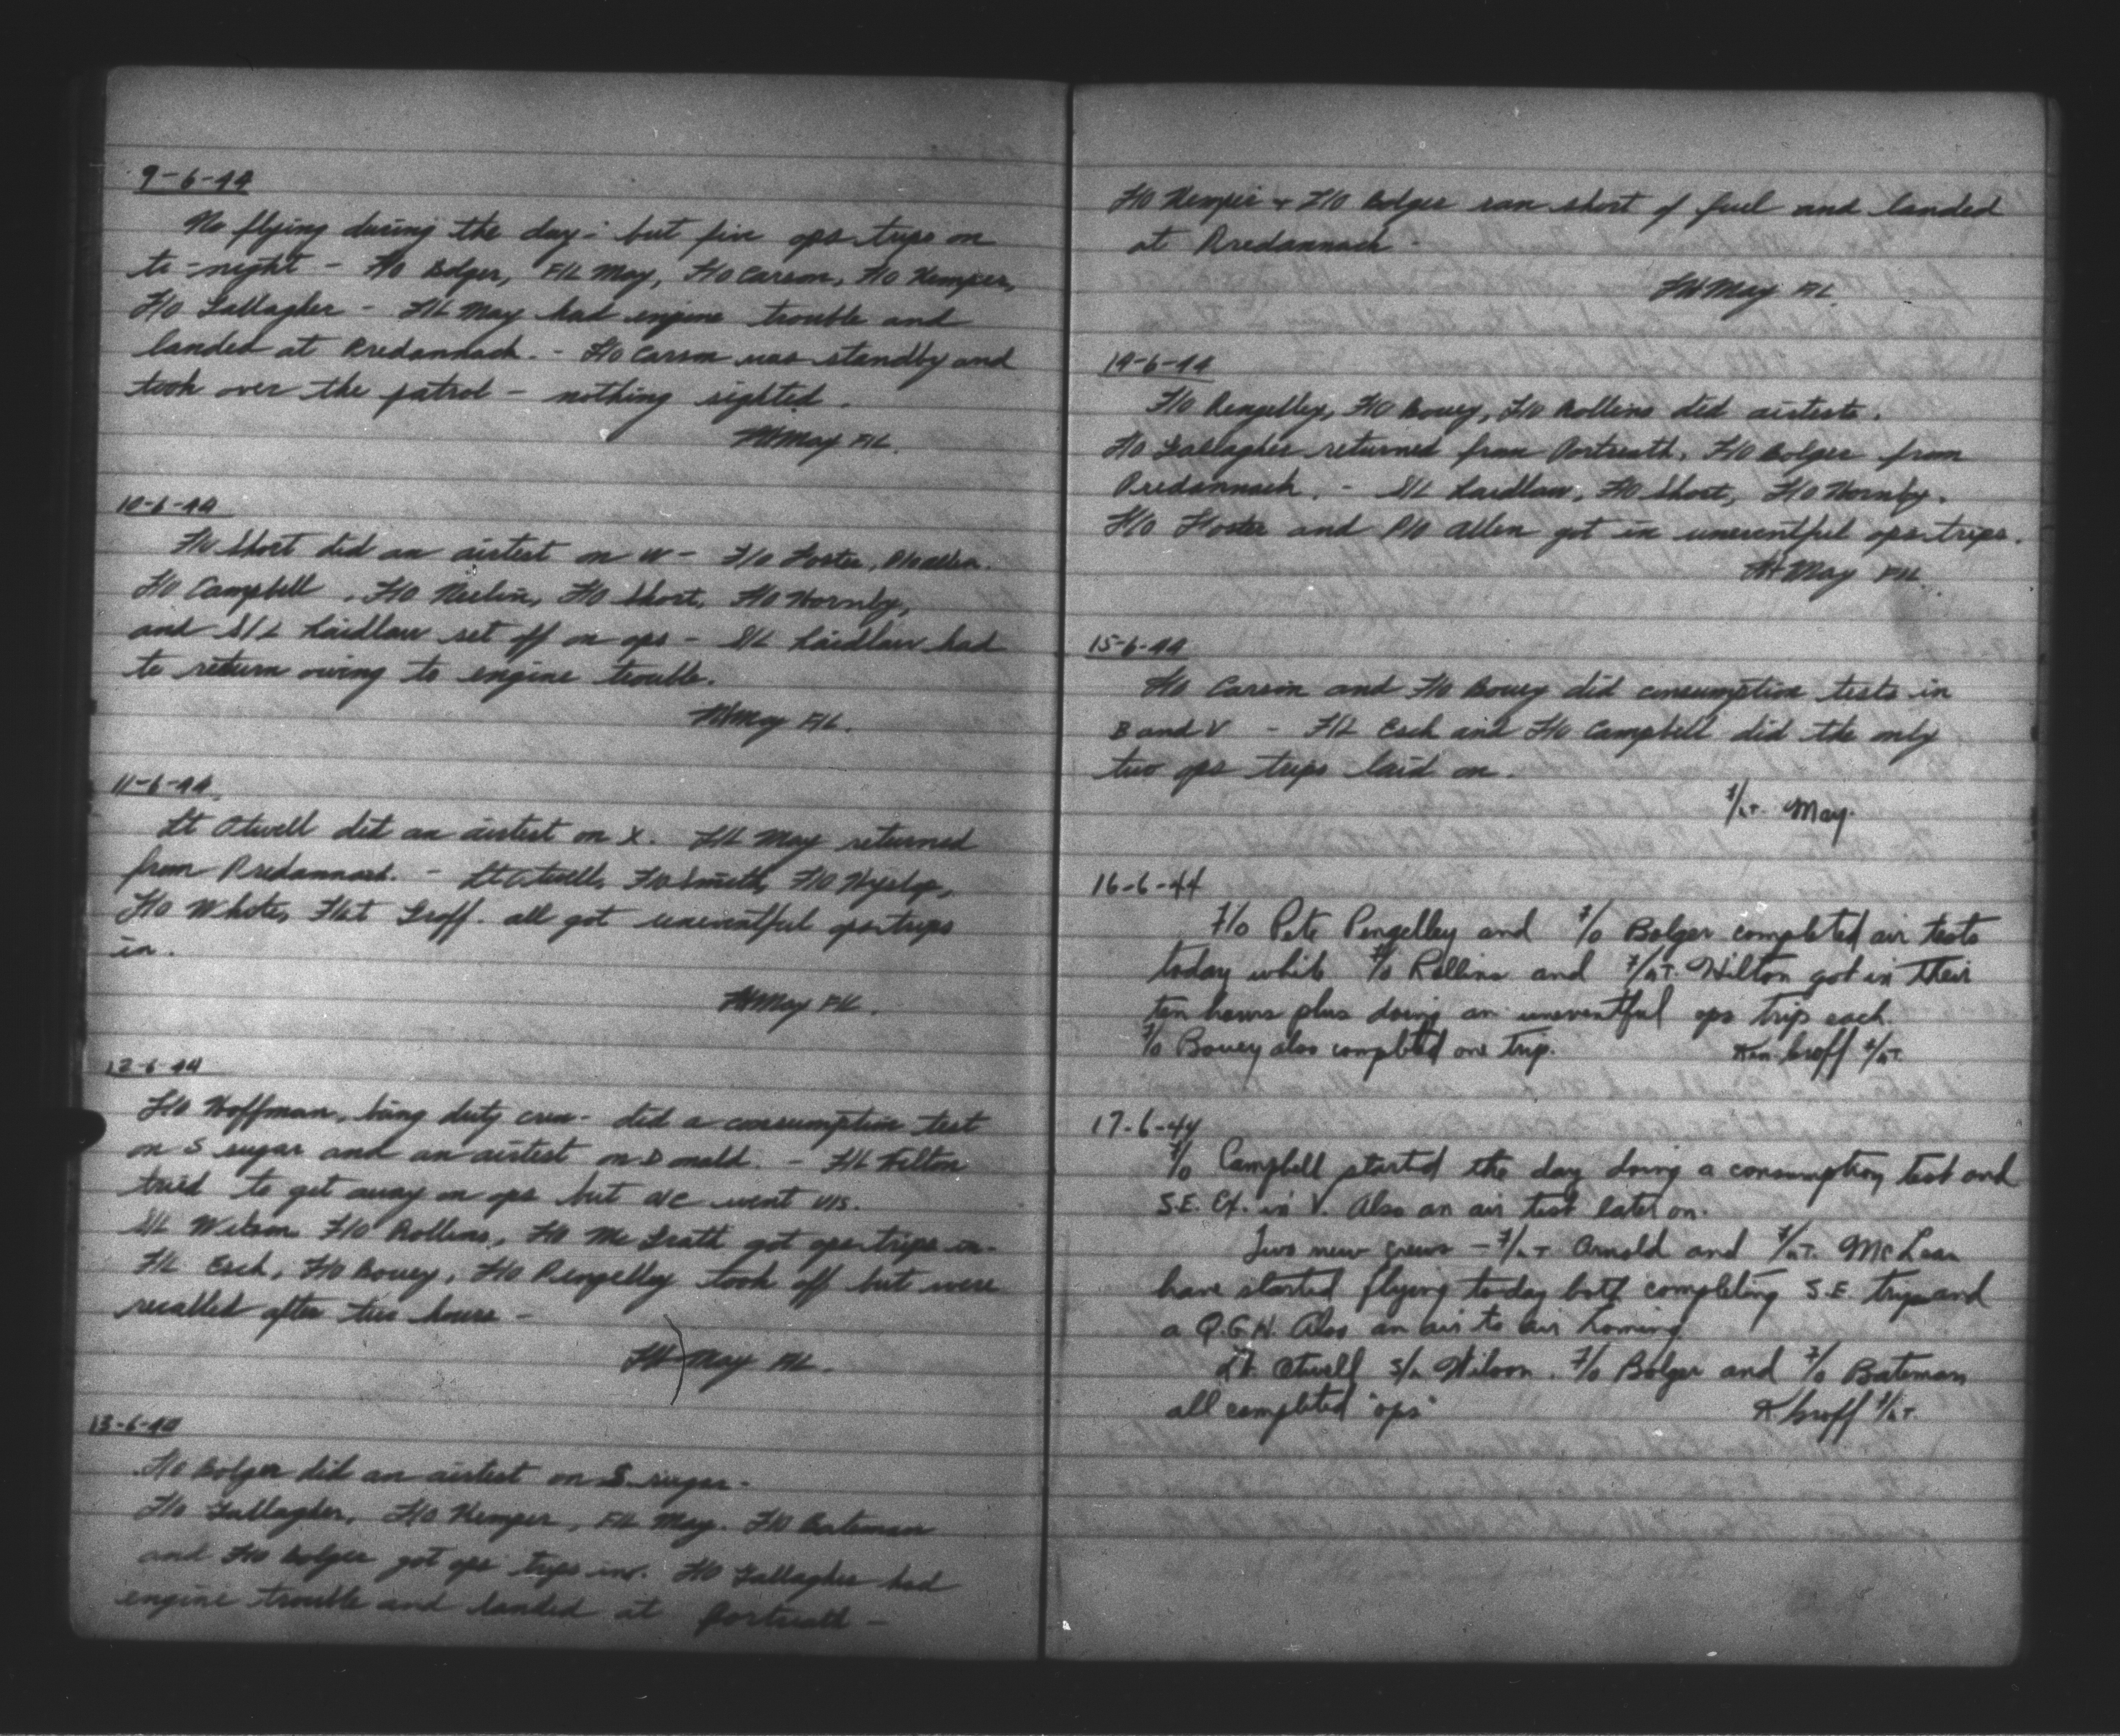 9-6-44
No flying during the day - but five ops trips on
to-night - F/O Bolger, F/L May, F/O Carson, F/O Kemper,
F/O Gallagher - F/L May had engine trouble and
landed at Predannack. - F/O Carson was standby and
took over the patrol - nothing sighted.
May F/L.
10-6-44
F/O Short did an airtest on W - F/O Foster, P/O Allen.
F/O Campbell, F/O Neelin, F/O Short, F/O Hornby,
and S/L Laidlaw set off on ops - S/L Laidlaw had
to return owing to engine trouble.
May F/L.
11-6-44
Lt Otwell did an airtest on X. F/L May returned
from Predannack. - Lt Otwell, F/O Smith, F/O Hyslop,
F/O White, F/Lt Groff. all got uneventful ops trips
in.
May F/L.
12-6-44
F/O Hoffman, being duty crew - did a consumption test
on S sugar and an airtest on Donald. - F/L Hilton
tried to get away on ops but a/c went U/S.
S/L Wilson F/O Rollins, F/O McGrath got ops trips in-
F/L Esch, F/O Bouey, F/O Pengelley took off but were
recalled after two hours -
May F/L.
13-6-44
F/O Bolger did an airtest on S sugar -
F/O Gallagher, F/O Kemper, F/L May. F/O Bateman
and F/O Bolger got ops trips in. F/O Gallagher had
engine trouble and landed at Portreath -
F/O Kemper + F/O Bolger ran short of fuel and landed
at Predannack -
May F/L.
14-6-44
F/O Pengelley, F/O Bouey, F/O Rollins did airtests.
F/O Gallagher returned from Portreath, F/O Bolger from
Predannack. - S/L Laidlaw, F/O Short, F/O Hornby.
F/O Foster and P/O Allen got in uneventful ops trips.
May F/L.
15-6-44
F/O Carson and F/O Bouey did consumption tests in
B and V - F/L Esch and F/O Campbell did the only
two ops trips laid on.
F/LT. May.
16-6-44
F/O Pete Pengelley and F/O Bolger completed air tests
today while F/O Rollins and F/LT. Hilton got in their
ten hours plus doing an uneventful ops trip each.
F/O Bouey also completed one trip. Ken Groff F/LT.
17-6-44
F/O Campbell started the day doing a consumption test and
S.E. Ex. in V. Also an air test later on.
Two new crews - F/LT Arnold and F/LT. McLean
have started flying today both completing S.E. trips and
a Q.G.H. Also an air to air homing
Lt. Otwell S/L Wilson. F/O Bolger and F/O Bateman
all completed "ops" K Groff F/LT.